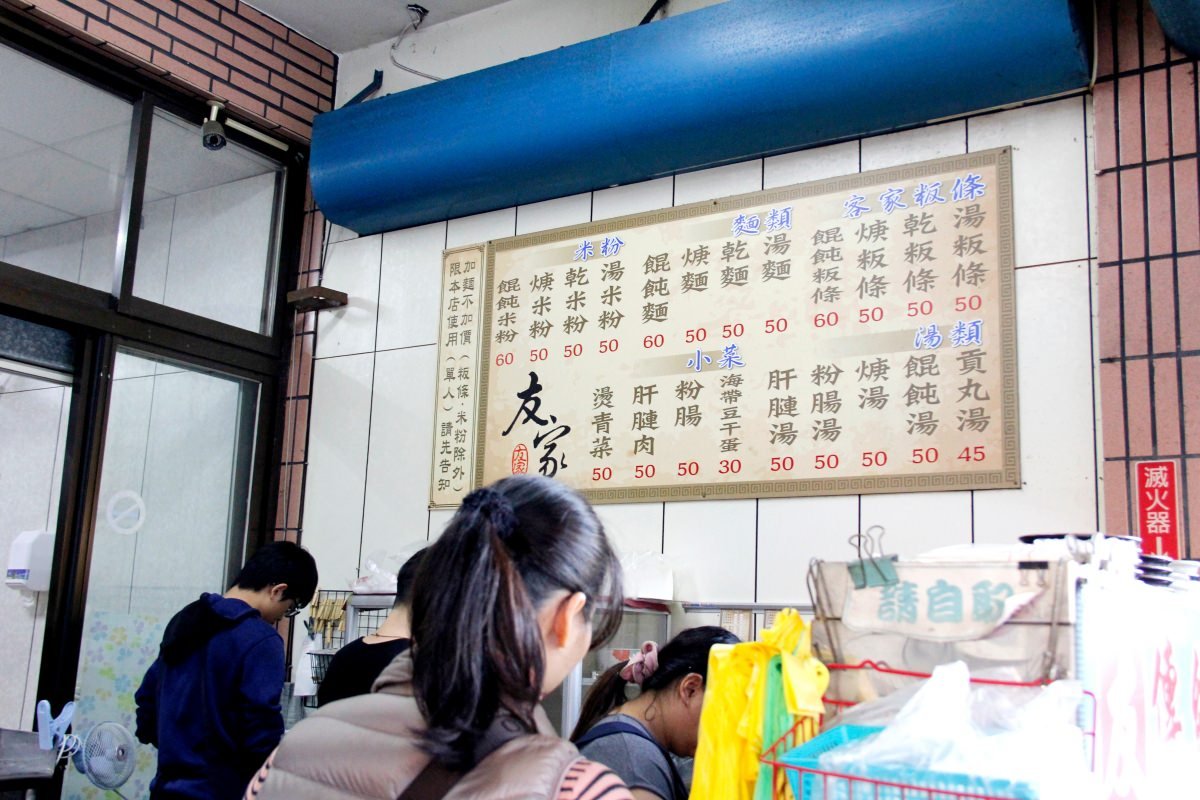 客家粄條
湯粄條 50
乾粄條 50
焿粄條 50
餛飩粄條 60
麵類
湯麵 50
乾麵 50
焿麵 50
餛飩麵 60
米粉
湯米粉 50
乾米粉 50
焿米粉 50
餛飩米粉 60
湯類
貢丸湯 45
餛飩湯 50
焿湯 50
粉腸湯 50
肝膤湯 50
小菜
海帶豆干蛋 30
粉腸 50
肝膤肉 50
燙青菜 50
友家
友家
加麵不加價(粄條·米粉除外)
限本店使用(單人)請先告知
滅火器
請自取